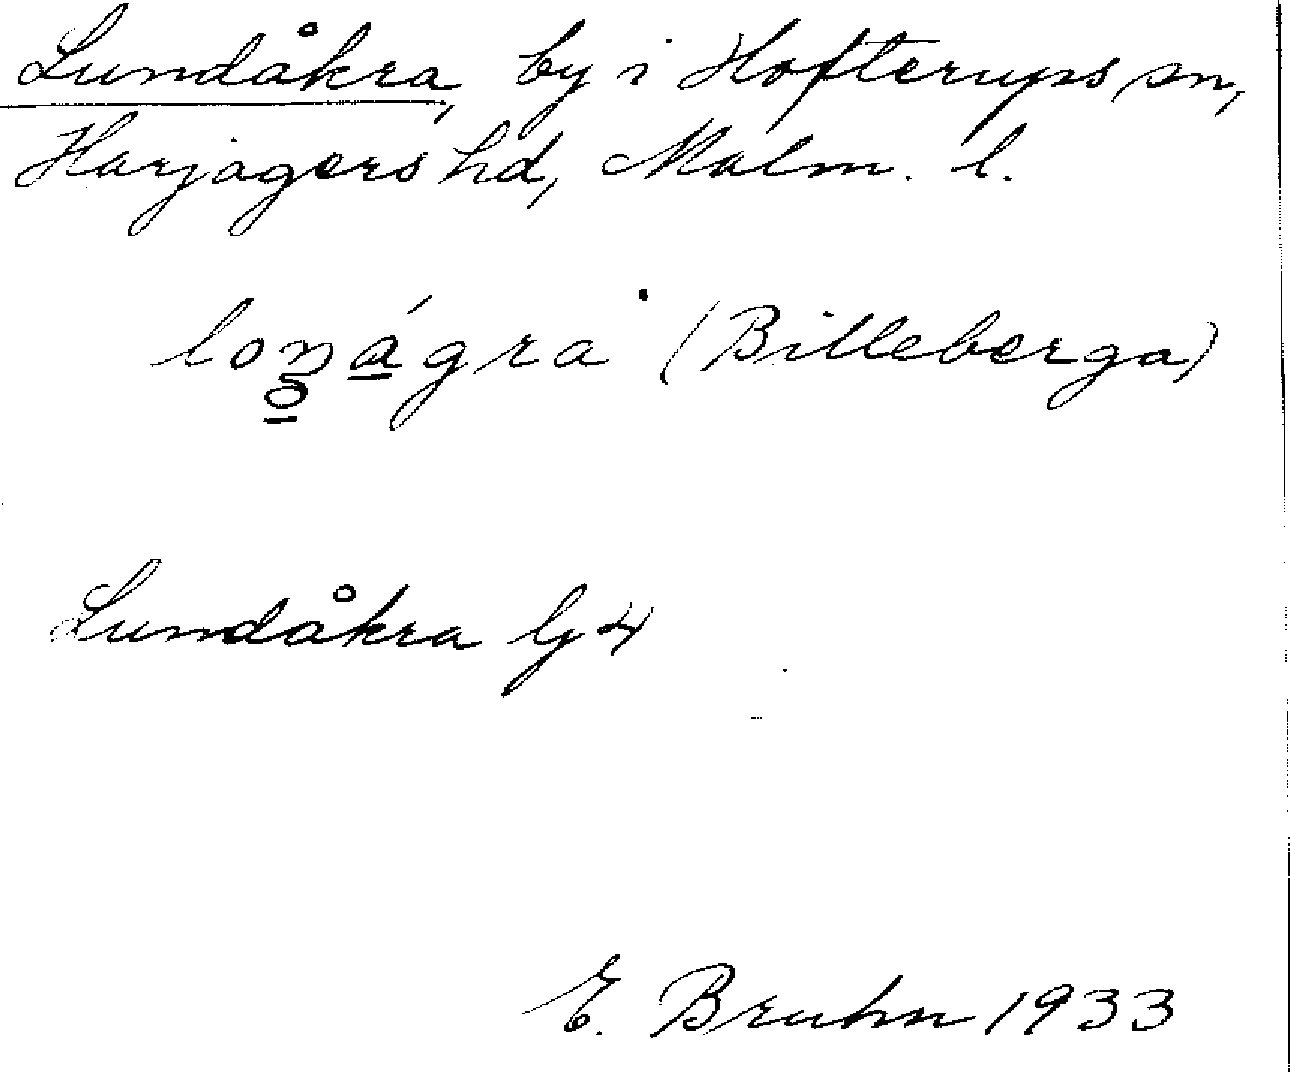 Lundåkra, by i Hofterups sn,
Harjagers hd, Malm. l.
(Billeberga)
Lundåkra G4
E. Bruhn 1933